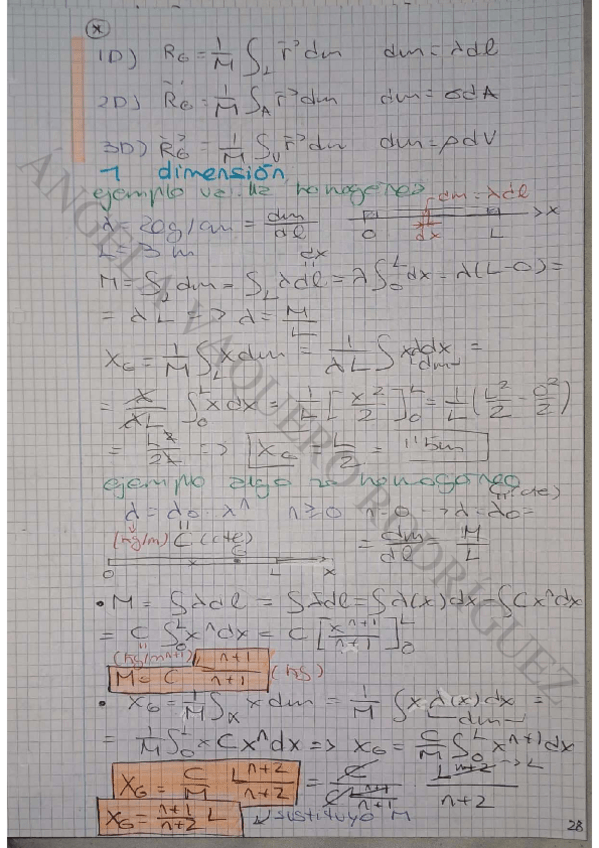 *
1D) R_G = 1/M ∫_L r⃗ dm   dm = λdl
2D) R⃗_G = 1/M ∫_A r⃗ dm   dm = σdA
3D) R⃗_G = 1/M ∫_V r⃗ dm   dm = ρdV
1 dimensión
ejemplo homogéneo
dm = λdl
λ = 20g/cm = dm/dl
0 dx L x
L = 3m
dx
M = ∫_L dm = ∫_L λdl = λ∫_0^L dx = λ(L-0) =
= λL => λ = M/L
X_G = 1/M ∫_L x dm = 1/λL ∫ xλdx =
dm
= λ/λL ∫_0^L x dx = 1/L [x²/2]_0^L = 1/L (L²/2 - 0²/2)
= L²/2L => X_G = L/2 = 1'5m
ejemplo algo no homogéneo
(cte)
λ = λ0 · x^n   n≥0   n=0 -> λ = λ0 =
(kg/m) C (cte)
= dm/dl = M/L
0 G L x
• M = ∫λdl = ∫λdl = ∫λ(x)dx = ∫Cx^n dx
= C ∫_0^L x^n dx = C [x^(n+1)/(n+1)]_0^L
(kg/m^(n+1))
M = C L^(n+1)/(n+1) (kg)
• X_G = 1/M ∫_x x dm = 1/M ∫ x λ(x) dx =
dm
= 1/M ∫_0^L x C x^n dx => X_G = C/M ∫_0^L x^(n+1) dx
X_G = C/M L^(n+2)/(n+2) = C/(C L^(n+1)/(n+1)) L^(n+2)/(n+2) -> L
X_G = (n+1)/(n+2) L   sustituyo M
28
ÁNGELA VAQUERO RODRÍGUEZ